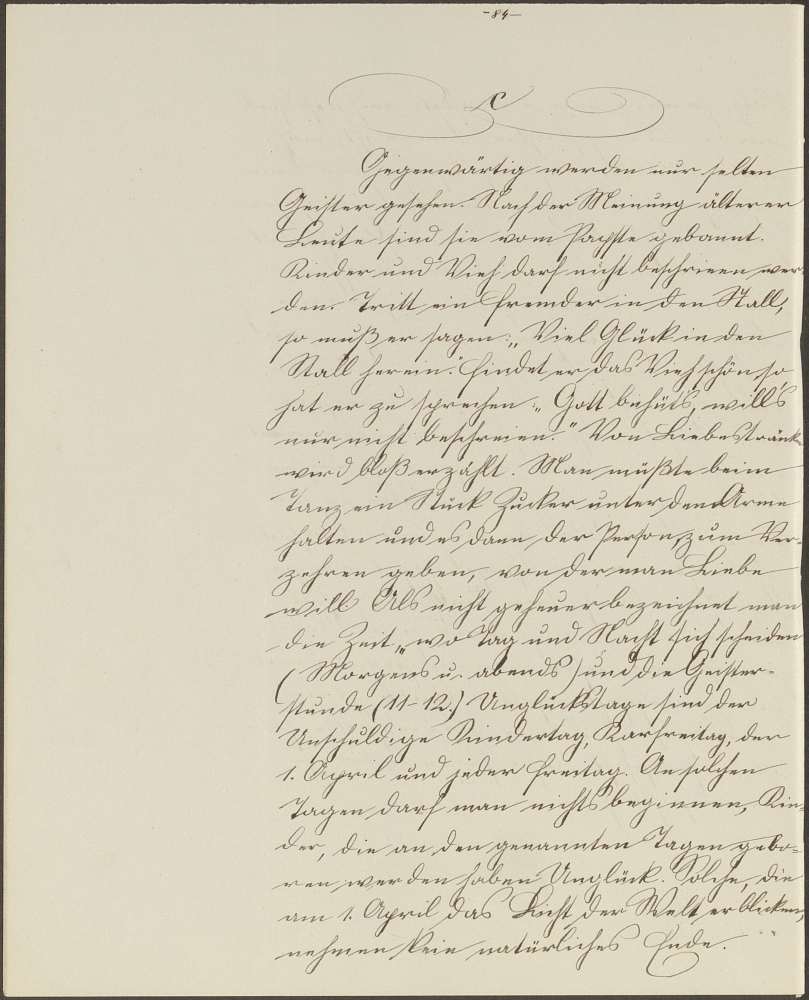 -84-
c
Gegenwärtig werden nur selten
Geister gesehen. Nach der Meinung älterer
Leute sind sie vom Papste gebannt.
Kinder und Vieh darf nicht beschrieen wer-
den. Tritt ein Fremder in den Stall,
so muß er sagen: „Viel Glück in den
Stall herein." Findet er das Vieh schön, so
hat er zu sprechen: „Gott behüt's, will's
nur nicht beschreien." Von Liebestränk
wird bloß erzählt. Man müßte beim
Tanz ein Stück Zucker unter dem Arme
halten und es dann der Person zum Ver-
zehren geben, von der man Liebe
will. Als nicht geheuer bezeichnet man
die Zeit, „wo Tag und Nacht sich scheiden
(Morgens u. abends) und die Geister-
stunde (11-12.) Unglückstage sind der
Unschuldige Kindertag, Karfreitag, der
1. April und jeder Freitag. An solchen
Tagen darf man nichts beginnen, Kin-
der, die an den genannten Tagen gebo-
ren werden haben Unglück. Solche, die
am 1. April das Licht der Welt erblicken,
nehmen kein natürliches Ende.